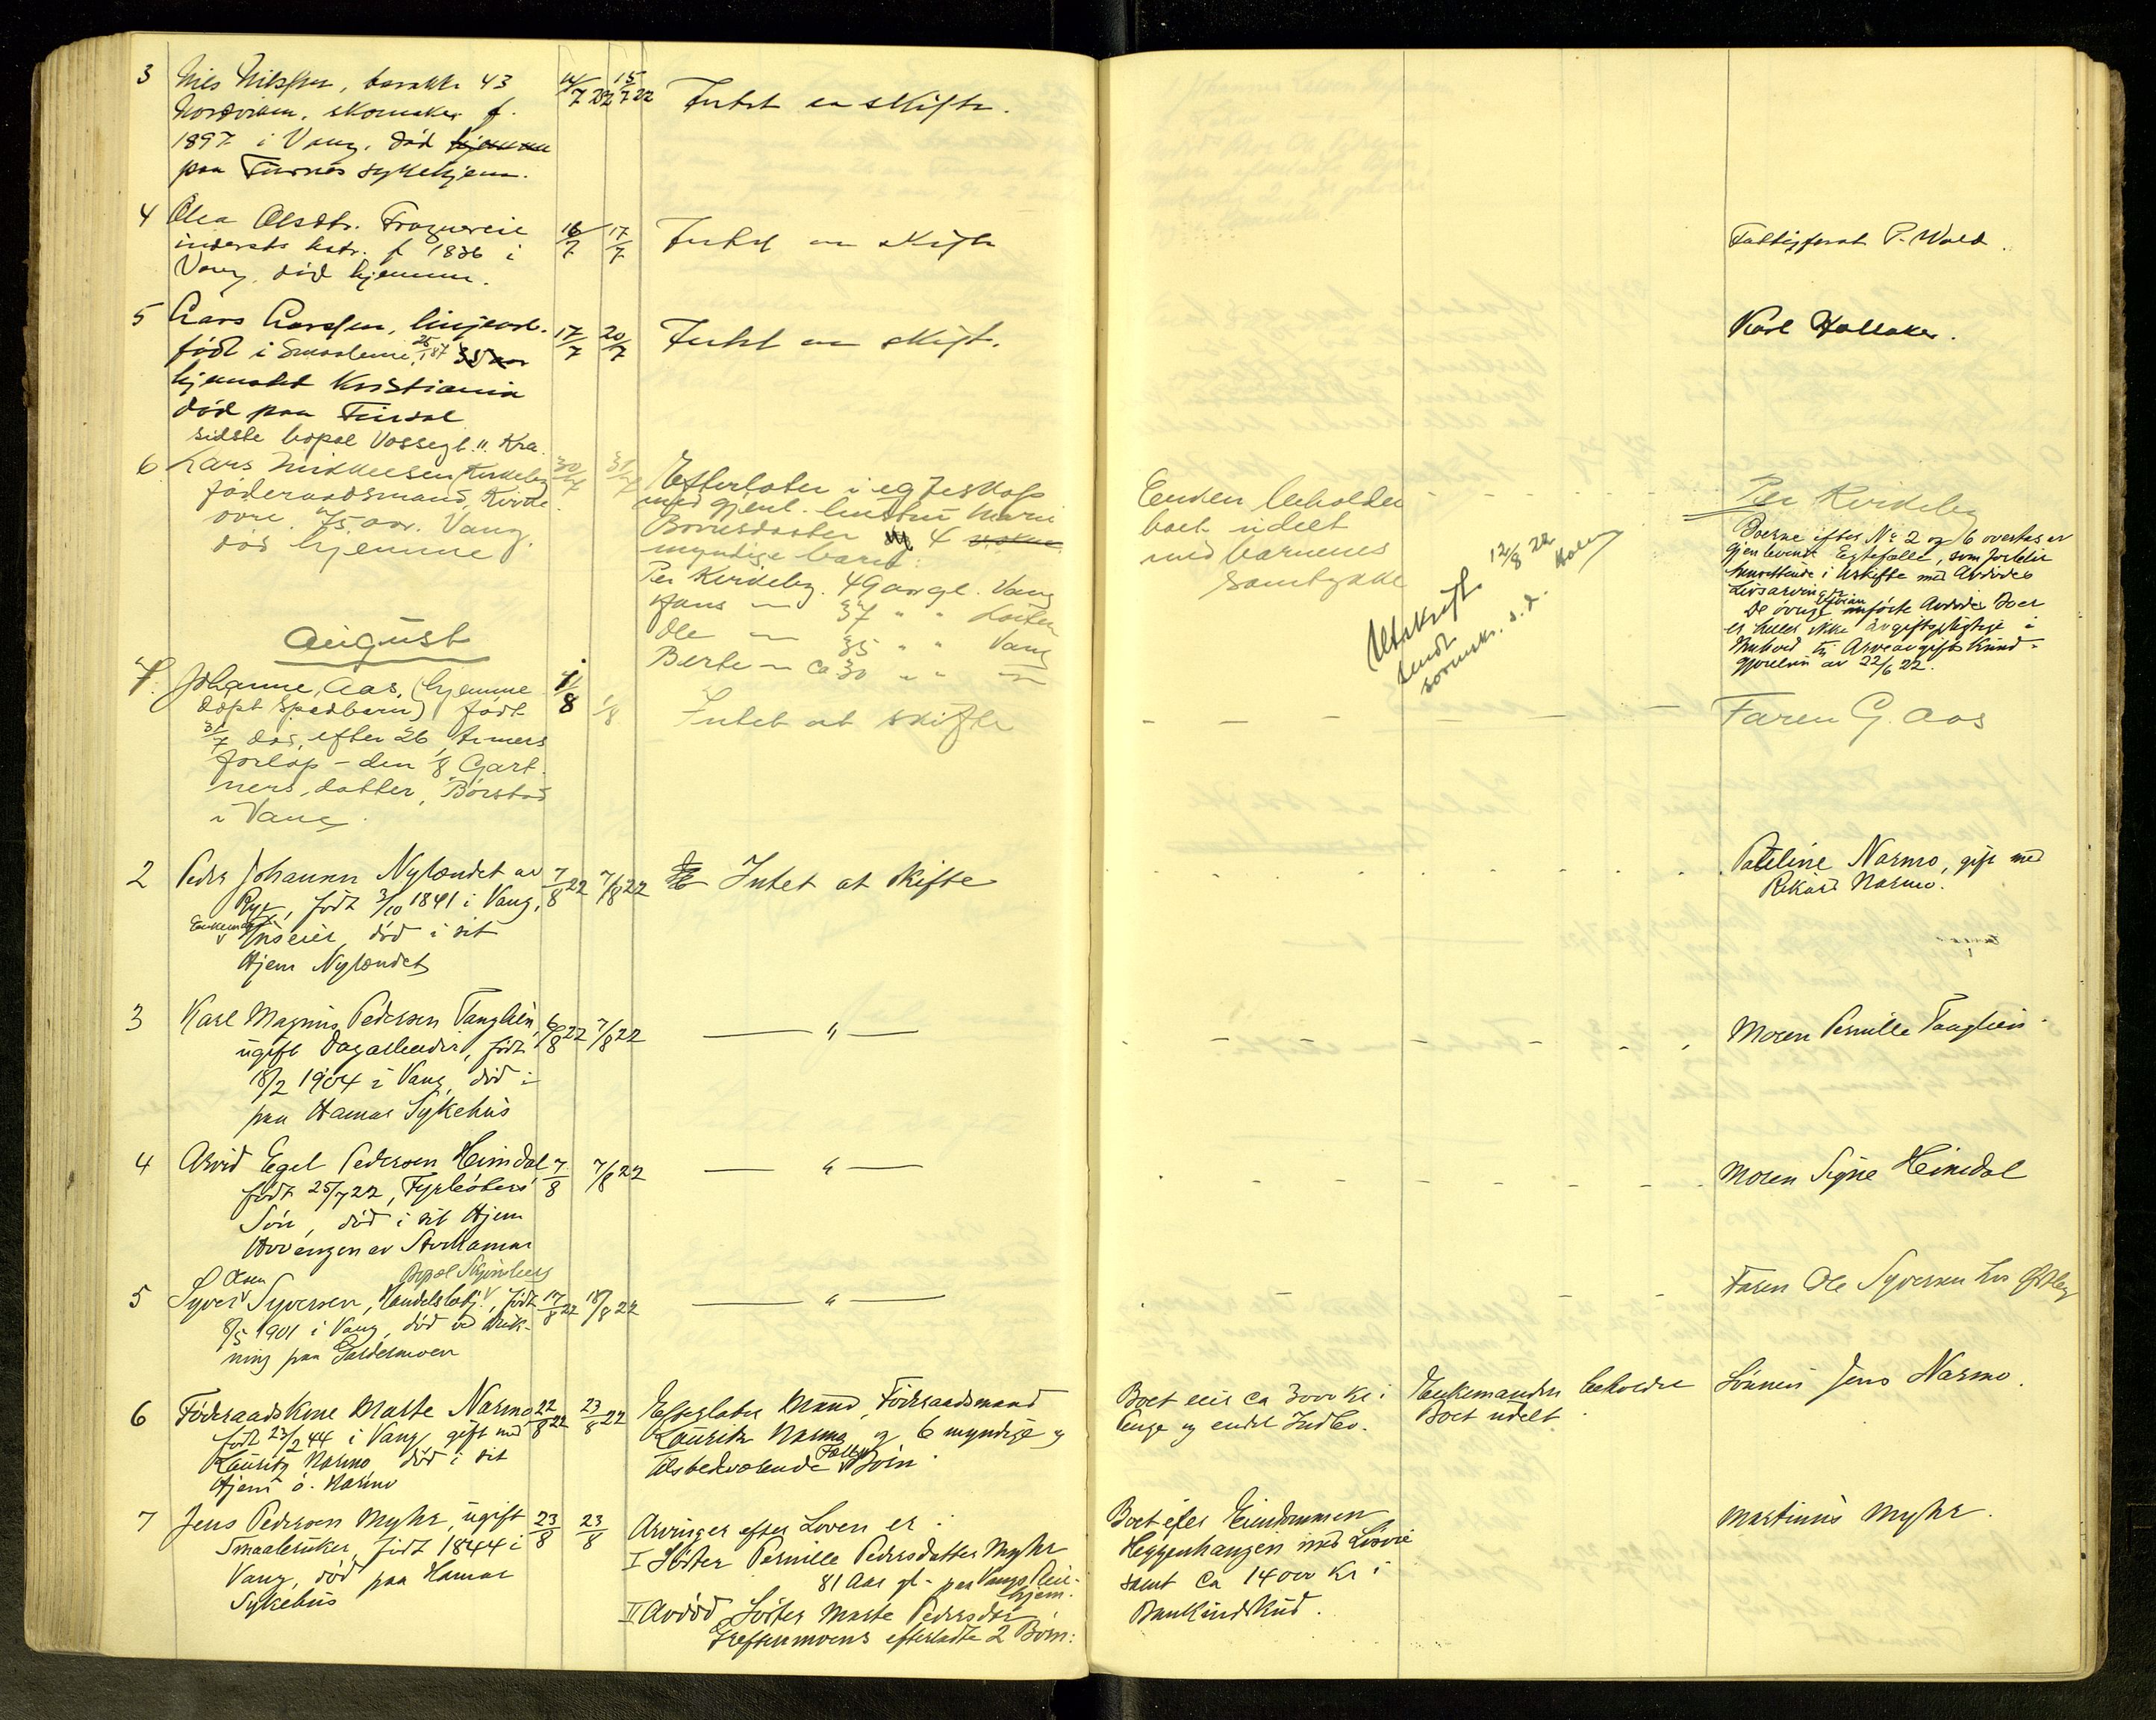 3 Nils Nilssen, barakke 43 14/7 22 15/7 22 Intet aa skifte.
Nordviken, skomaker f.
1897 i Vang, død hjemme
paa Furnes sykehjem.
4 Olea Olsdtr. 16/7 17/7 Intet aa skifte Fattigforst P. Wold.
inderst f 1836 i
Vang, død hjemme.
5 Lars Larssen, linjearb. 17/7 20/7 Intet aa skifte. Karl Hallaker.
født i Smaalene 87
hjemsted Kristiania
død paa
sidste bopæl Vossegt. 11 Kra.
6 Lars Mikkelsen Kirkeby 30/7 31/7 Efterlater i egteskap Enken beholder Per Kirkeby
føderaadsmand, med gjenl. hustru Marie boet udelt Boerne efter No 2 og 6 overtas av
øvre. 75 aar. Vang. 4 med barnenes gjenlevende Egtefælle, som forblir
død hjemme myndige barn: samtykke hensittende i Uskifte med Avdødes
Livsarvinger
Per Kirkeby. 49 aar gl. Vang Utskrift 12/8 22
Hans — 37 " " Løiten sendt
Ole — 35 " " Vang sorenskr. s. d.
Berte — ca 30 " " —
De øvrige anførte Avdødes Boer
er heller ikke avgiftspligtige i
Henhold til Arveavgifts Kund-
gjørelsen av 22/6 22.
August
1. Johanne Aas, (hjemme 1/8 1/8 Intet at skifte Faren G. Aas
døpt spedbarn) født
31/7 død, efter 26 timers
forløp - den 1/8 Gart-
ners datter, Børstad
i Vang.
2 Peder Johannesen Nylændet av 7/8 22 7/8 22 Intet at skifte Pauline Narmo, gift med
født 3/10 1841 i Vang, Rikard Narmo.
Enkemand Huseier død i sit
Hjem Nylændet
3 Karl Magnus Pedersen Tanglien, 6/8 22 7/8 22 — " — Moren Pernille Tanglien
ugift Dagarbeider, født
18/2 1904 i Vang, død i
paa Hamar Sykehus
4 Arvid Egel Pedersen Heimdal, 7/8 7/8 22 — " — Moren Signe Heimdal
født 25/7 22, Fyrbøters
Søn, død i sit Hjem
av Storhamar
5 Syver Olsen Syversen, Handelsbetj., født 17/8 22 18/8 22 — " — Faren Ole Syversen
8/5 1901 i Vang, død ved Druk-
ning paa Gardermoen
6 Føderaadskone Marte Narmo 22/8 22 23/8 22 Efterlater Mand, Føderaadsmand Boet eier ca 3000 Kr i Enkemanden beholder Sønnen Jens Narmo.
født 23/2 44 i Vang, gift med Lauritz Narmo og 6 myndige og Penge og endel Indbo. Boet udelt.
Lauritz Narmo død i sit Tilstedeværende Fælles Børn
Hjem ø. Narmo
7 Jens Pedersen Myhr, ugift 23/8 23/8 Arvinger efter Loven er: Boet eier Eiendommen Martinus Myhr.
Smaabruker, født 1844 i I Søster Pernille Pedersdatter Myhr Heggenhaugen med Løsøre
Vang, død paa Hamar 81 Aar gl. paa Vangs Pleie- samt ca 14000 Kr i
Sykehus hjem. Bankindskud.
II Avdød Søster Marte Pedersdtr
efterladte 2 Børn: